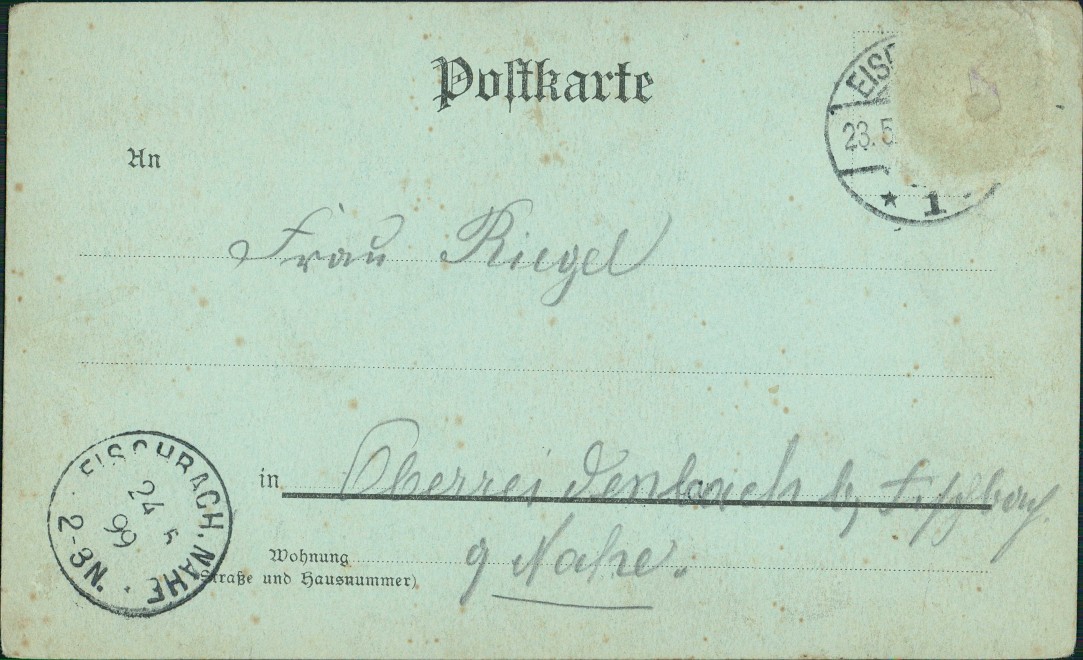 Postkarte
23.5.
* 1
An
Frau Riegel
in Oberreidenbach b/ Fischbach
Nahe.
Wohnung
(Straße und Hausnummer)
FISCHBACH, NAHE
24 5 99
2-3N.